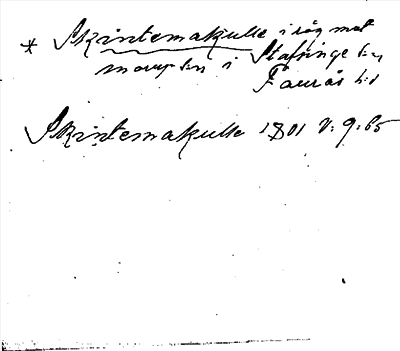 * Skintemakulle i råg mot
morup sn i Stafsinge sn
Faurås hd
Skintemakulle 1801 V: 9: 65